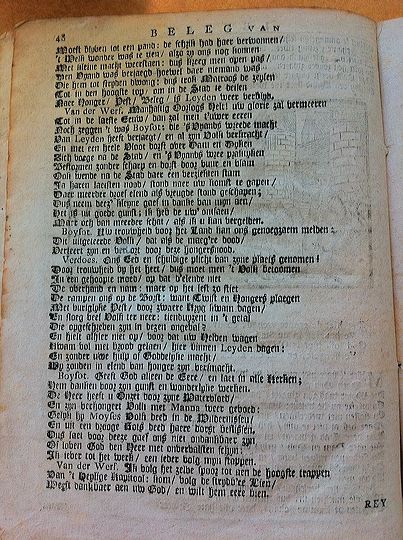 48 BELEG VAN
Moest blyven tot een pand: de schrik had haer verwonnen/
't Volk wander was te zien/ alzo zy ons nog konnen
Met kleine macht weerstaen: dus kreeg men open pas/
Men vand was verjaegd hoewel daer niemand was
Die hem tot stryden dwong: dus trok Marous de zeylen
Tot in den hoogsten top/ om in de Stad te deilen
Haer Honger/ Pest/ Beleg/ is Leyden weer verblyd.
Van der Werf. Manhaftig Oorlogs Helt! uw glorie zal vermeeren
Tot in de laetste Eeuw/ dan zal men t'uwer eeren
Noch zeggen 't was Boysot: die 's Vyands wreede macht
Van Leyden heeft verjaegt/ en al zyn Volk verkracht/
En met een heele Vloot dorst over Dam en Dyken
Zich voege na de Stad/ en 's Vyands wee praktyken
Bestormen zonder schaep en dorst door buur en vlam
Doen wende na de Stad daer een verzieksten stam
In haren laetsten nood/ stond naer uw komst te gapen/
Daer meerder droef elend als vreugde stond geschapen;
Dus neem deez' kleyne gaef in danke van myn aen/
Het is uit goede gunst; ik hed de uw' ontfaen/
Maer och dan meerder schat/ als ik u kan vergelden.
Boysot. Uw trouwheid voor het Land kan ons genoegzaem melden:
Die uitgeteerde Volk/ dat als de maeg're dood/
Verteert zyn en verdort door deze hongersnood.
Verdoes. Ons Eed en schuldige plicht van zyne plaets genomen!
Door trouwheid op het hert/ dus moet men 't Volk betoomen
In een gehoopte noed/ op dat d'elende niet
De overhand en nam: maer op het lest zo stiet
De rampen ons op de Borst: want Twist en Hongers plaegen
Met vuriglyke Pest/ door zwaere Krpg kwam dagen/
En sloeg veel Volk ter neer: tienduyzent in 't getal
Die opgeschreven zyn in dezen ongeval?
En hielt alhier niet op/ voor dat uw Helden wagen
Kwam vol met brood gelaen/ hier binnen Leyden dagen:
En zonder uwe hulp of Goddelyke macht/
Wy zonden in elend van honger zyn versmacht.
Boysot. Geeft God alleen de Eere/ en laet in alle Kerken;
Hem danken voor zyn gunst en wonderlyke werken.
De Heer heeft u Ontzet door zyne Waterbloed/
En zyn verhongert Volk met Manna weer gevoed:
Gelyk hy Moyses Volk deed in de Wildernissen/
En uit een drooge Gods deed haere dorst beslissen/
Dus laet voor deeze gaef ons niet ondankbaer zyn
Of loven God den Heer met onvervalsten schyn:
Ik ieder tot het werk/ een ieder volg myn stappen.
Van der Werf. Ik volg het zelve spoor tot aen de hoogste trappen
Van 't Heylige Kapitool: kom/ volg de strydb're Lien/
Weest dankbaer aen uw God/ en wilt hem eere bien.
REY